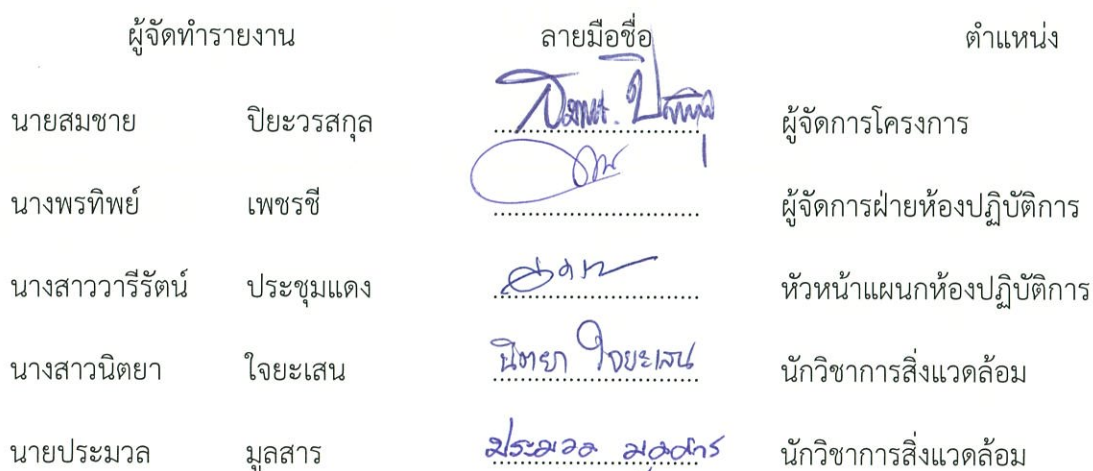 ผู้จัดทำรายงาน ลายมือชื่อ ตำแหน่ง
นายสมชาย ปิยะวรสกุล ผู้จัดการโครงการ
นางพรทิพย์ เพชรชี ผู้จัดการฝ่ายห้องปฏิบัติการ
นางสาววารีรัตน์ ประชุมแดง หัวหน้าแผนกห้องปฏิบัติการ
นางสาวนิตยา ใจยะเสน นิตยา ใจยะเสน นักวิชาการสิ่งแวดล้อม
นายประมวล มูลสาร ประมวล มูลสาร นักวิชาการสิ่งแวดล้อม